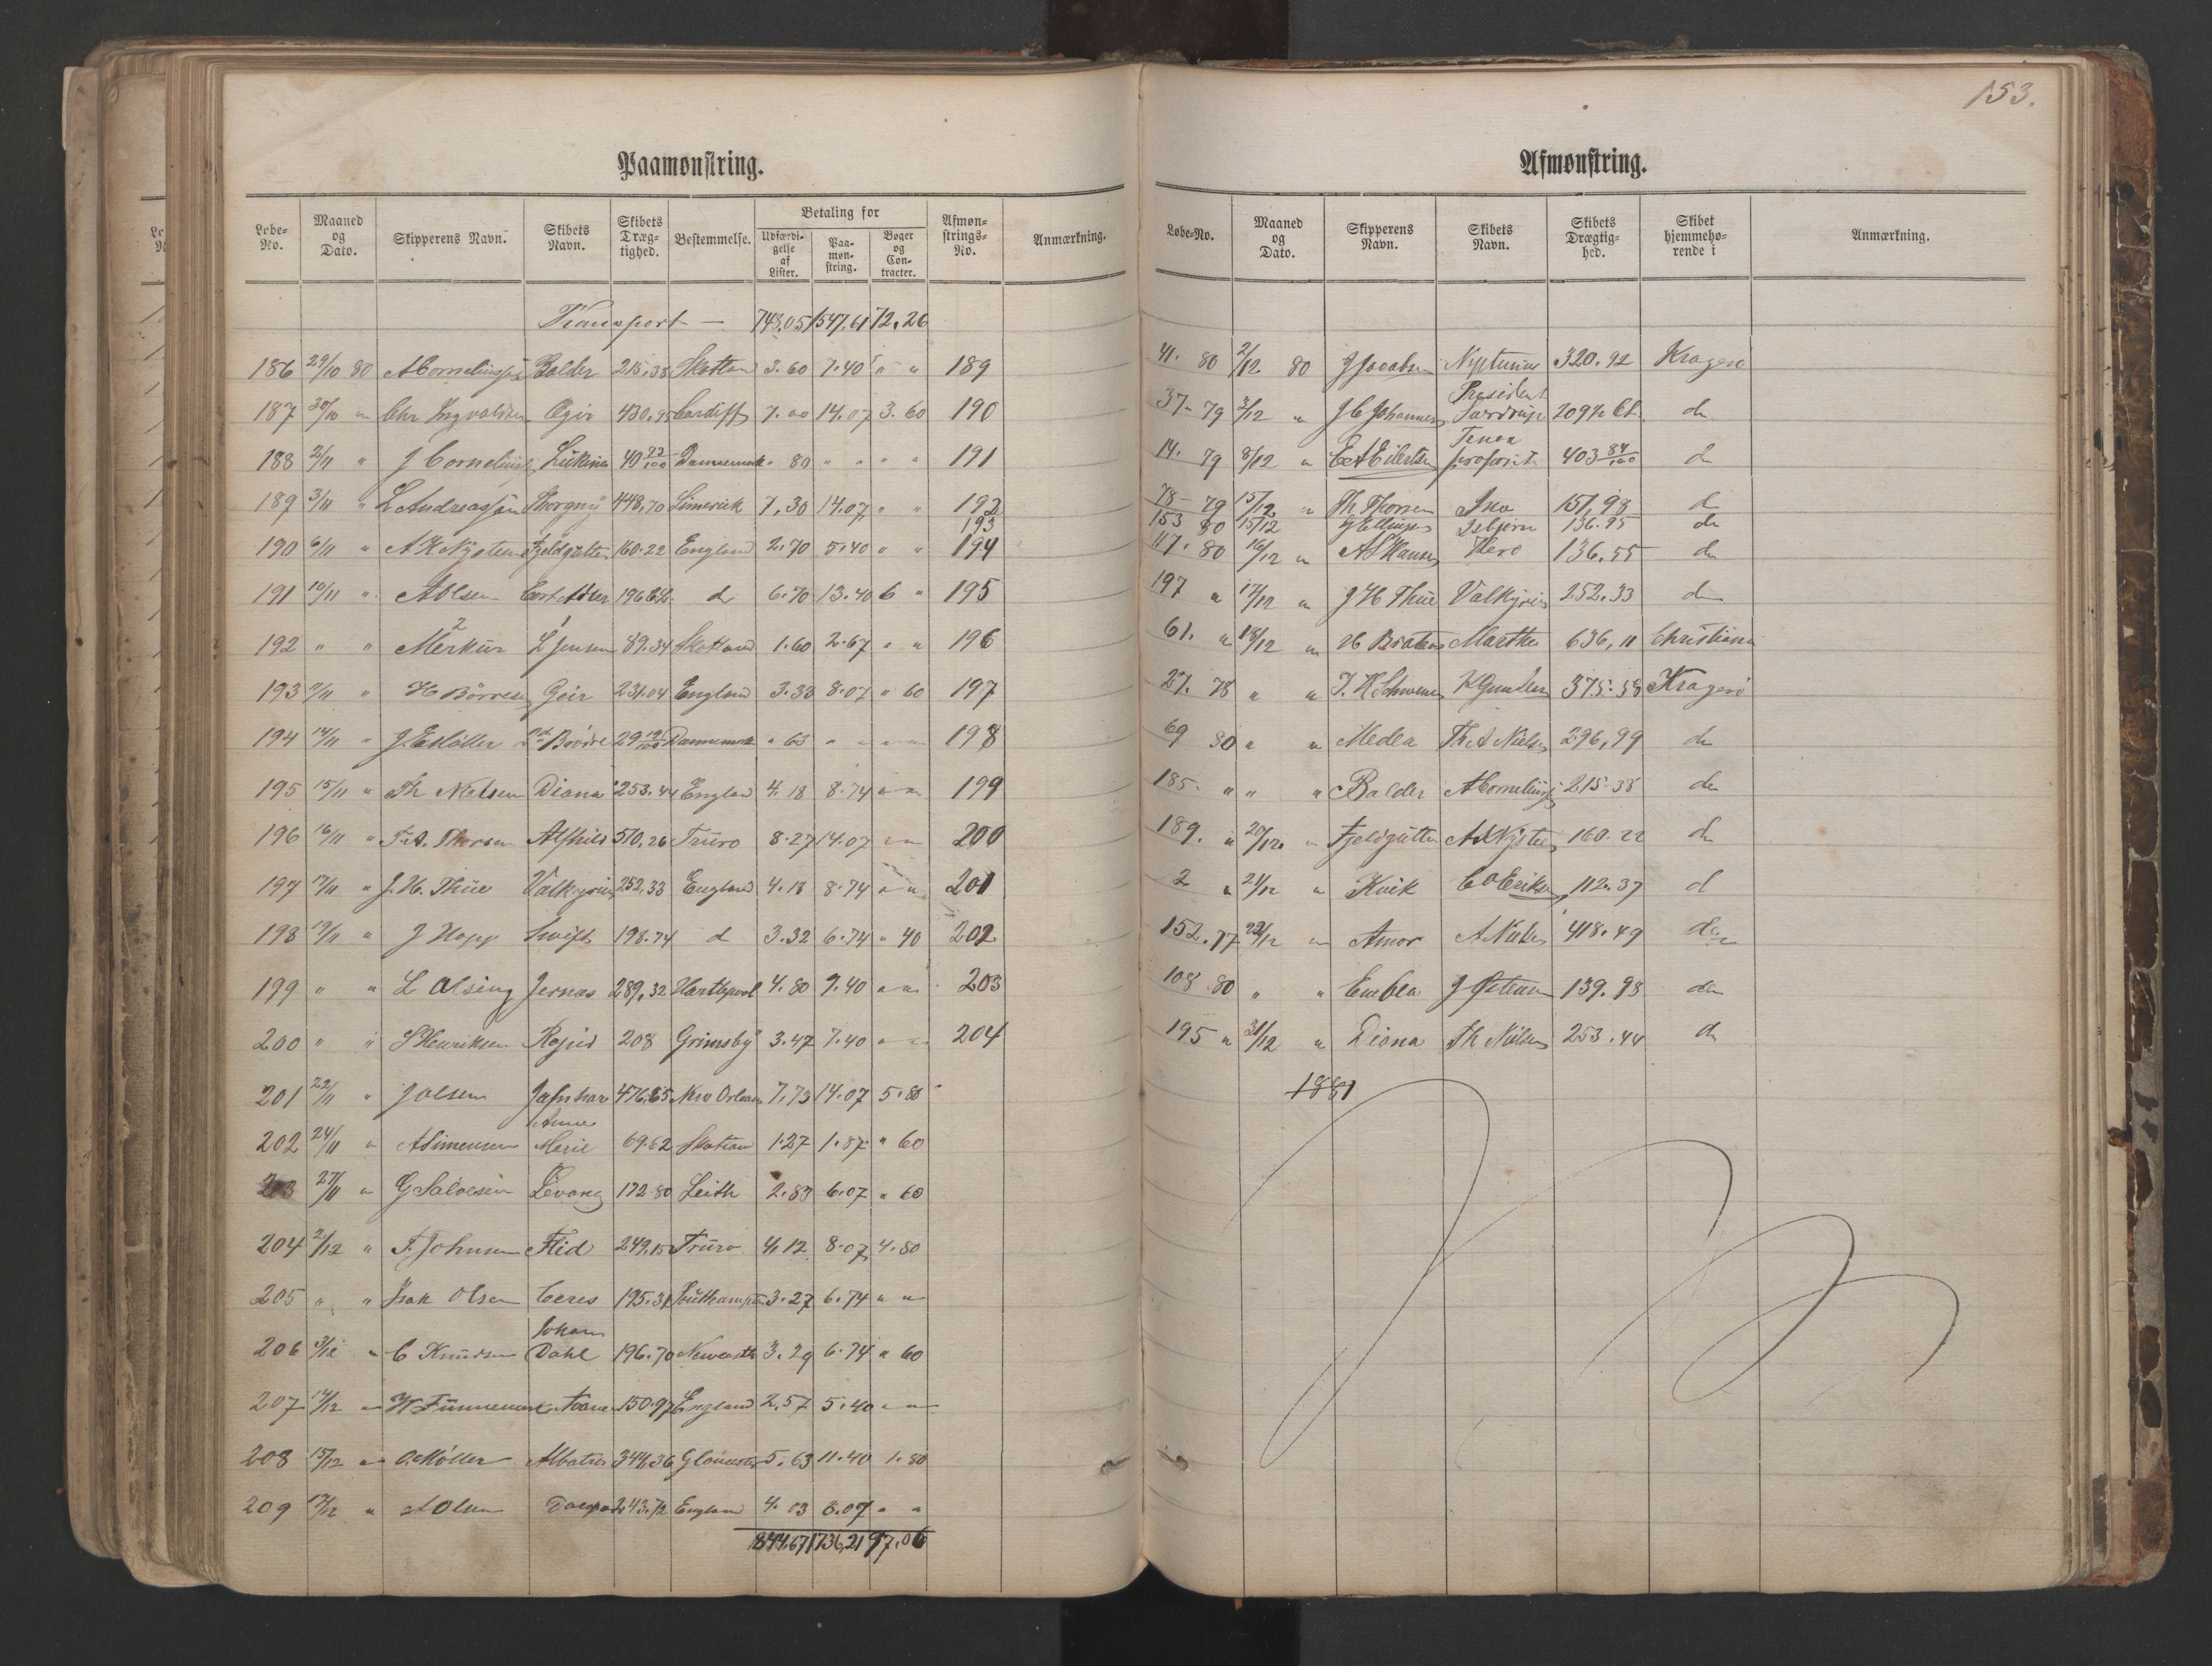 153.
Paamønstring.
Løbe-No. Maaned og Dato. Skipperens Navn. Skibets Navn. Skibets Dræg-tighed. Bestemmelse. Betaling for Udfærdi-gelse af Lister. Paa-møn-string. Bøger og Con-tracter. Afmøn-strings-No. Anmærkning.
Transport — 748.05 1547.61 72.26
186 29/10 80 A Corneliussen Balder 215,38 Skotlan 3.60 7.40 " " 189
187 30/10 " Chr Ingvaldsen Ægir 430,95 Cardiff 7.00 14.07 3.60 190
188 2/11 " J Cornelius 40 22/100 Danmark " 80 " " " " 191
189 3/11 " L Andreassen Thorgny 448,70 Limerick 7,30 14.07 " " 192
193
190 6/11 " A K Nysteen Fjeldgutten 160.22 England 2.70 5.40 " " 194
191 10/11 " A Olsen Cort Adler 196 d 6.70 13.40 6 " 195
192 " " Merkur 2 L Jensen 1 89.34 Skotland 1.60 2.67 " " 196
193 9/11 " H Börresen Geir 231.04 England 3.33 8.07 " 60 197
194 14/11 " J. E Møller Brødre 29 19/100 Danmark " 63 " " " " 198
195 15/11 " Th Nielsen Diana 253.44 England 4.18 8.74 " " 199
196 16/11 " T. A. Thorsen Alfhild 510,26 Truro 8.27 14.07 " " 200
197 17/11 " J. H. Thue Valkyrien 252,33 England 4.18 8.74 " " 201
198 19/11 " J Hopp Swift 198.74 d 3.32 6.74 " 40 202
199 " " L Olsing Jernæs 289,32 Hartlepool 4.80 9.40 " " 203
200 " " S Henriksen Rapid 208 Grimsby 3.47 7.40 " " 204
201 22/11 " J Olsen Jafnhar 476,65 New Orleans 7,73 14.07 5.80
202 24/11 " A Simensen Anne Marie 69.62 Skotlan 1.27 1.87 " 60
203 27/11 " G Salvesen Levang 172.80 Leith 2.83 6.07 " 60
204 2/12 " F. Johnsen Flid 249,15 Truro 4,12 8.07 4.80
205 " " Isak Olsen Ceres 195.31 Southampton 3.27 6.74 " "
206 3/12 " C Knudsen Johan Dahl 196.70 Newcastle 3.29 6.74 " 60
207 14/12 " 150.97 England 2.57 5.40 " "
208 15/12 " O. Møller Albatros 344,36 Gloucester 5.63 11.40 1.80
209 17/12 " A Olsen 243.72 England 4.03 8.07 " "
844.67 1736,21 97.06
Afmønstring.
Løbe-No. Maaned og Dato. Skipperens Navn. Skibets Navn. Skibets Drægtig-hed. Skibet hjemmehø-rende i Anmærkning.
41. 80 2/12 80 J Jacobsen Neptunus 320.92 Kragerø
37- 79 3/12 " J C Johannesen President Særdrup 209 1/2 Cl. do
14. 79 8/12 " E A Eilertsen Tenax propositi 403 84/100 d
78- 79 15/12 " Th Thorsen Ino 151,98 d
153 80 15/12 G Ellingsen Isbjørn 136.95 do
117. 80 16/12 " A L Hansen Hero 136.55 do
197 " 17/12 " J H Thue Valkyrien 252.33 do
61. " 18/12 " Martha 636,11 Christiania
27. 78 " " 375.59 Kragerø
69 80 " " Medea Th A Nielsen 296,99 do
185. " " " Balder A Corneliussen 215.38 do
189. " 20/12. " Fjeldgutten A K Nysteen 160.22 d
2 " 21/12 " Kvik C O Eriksen 112.37 d
152. 77 22/12 " Amor A Nielsen 418.49 do
108. 80 " " Embla J Østensen 139.98 do
195 " 31/12 " Diana Th Nielsen 253.44 do
1881